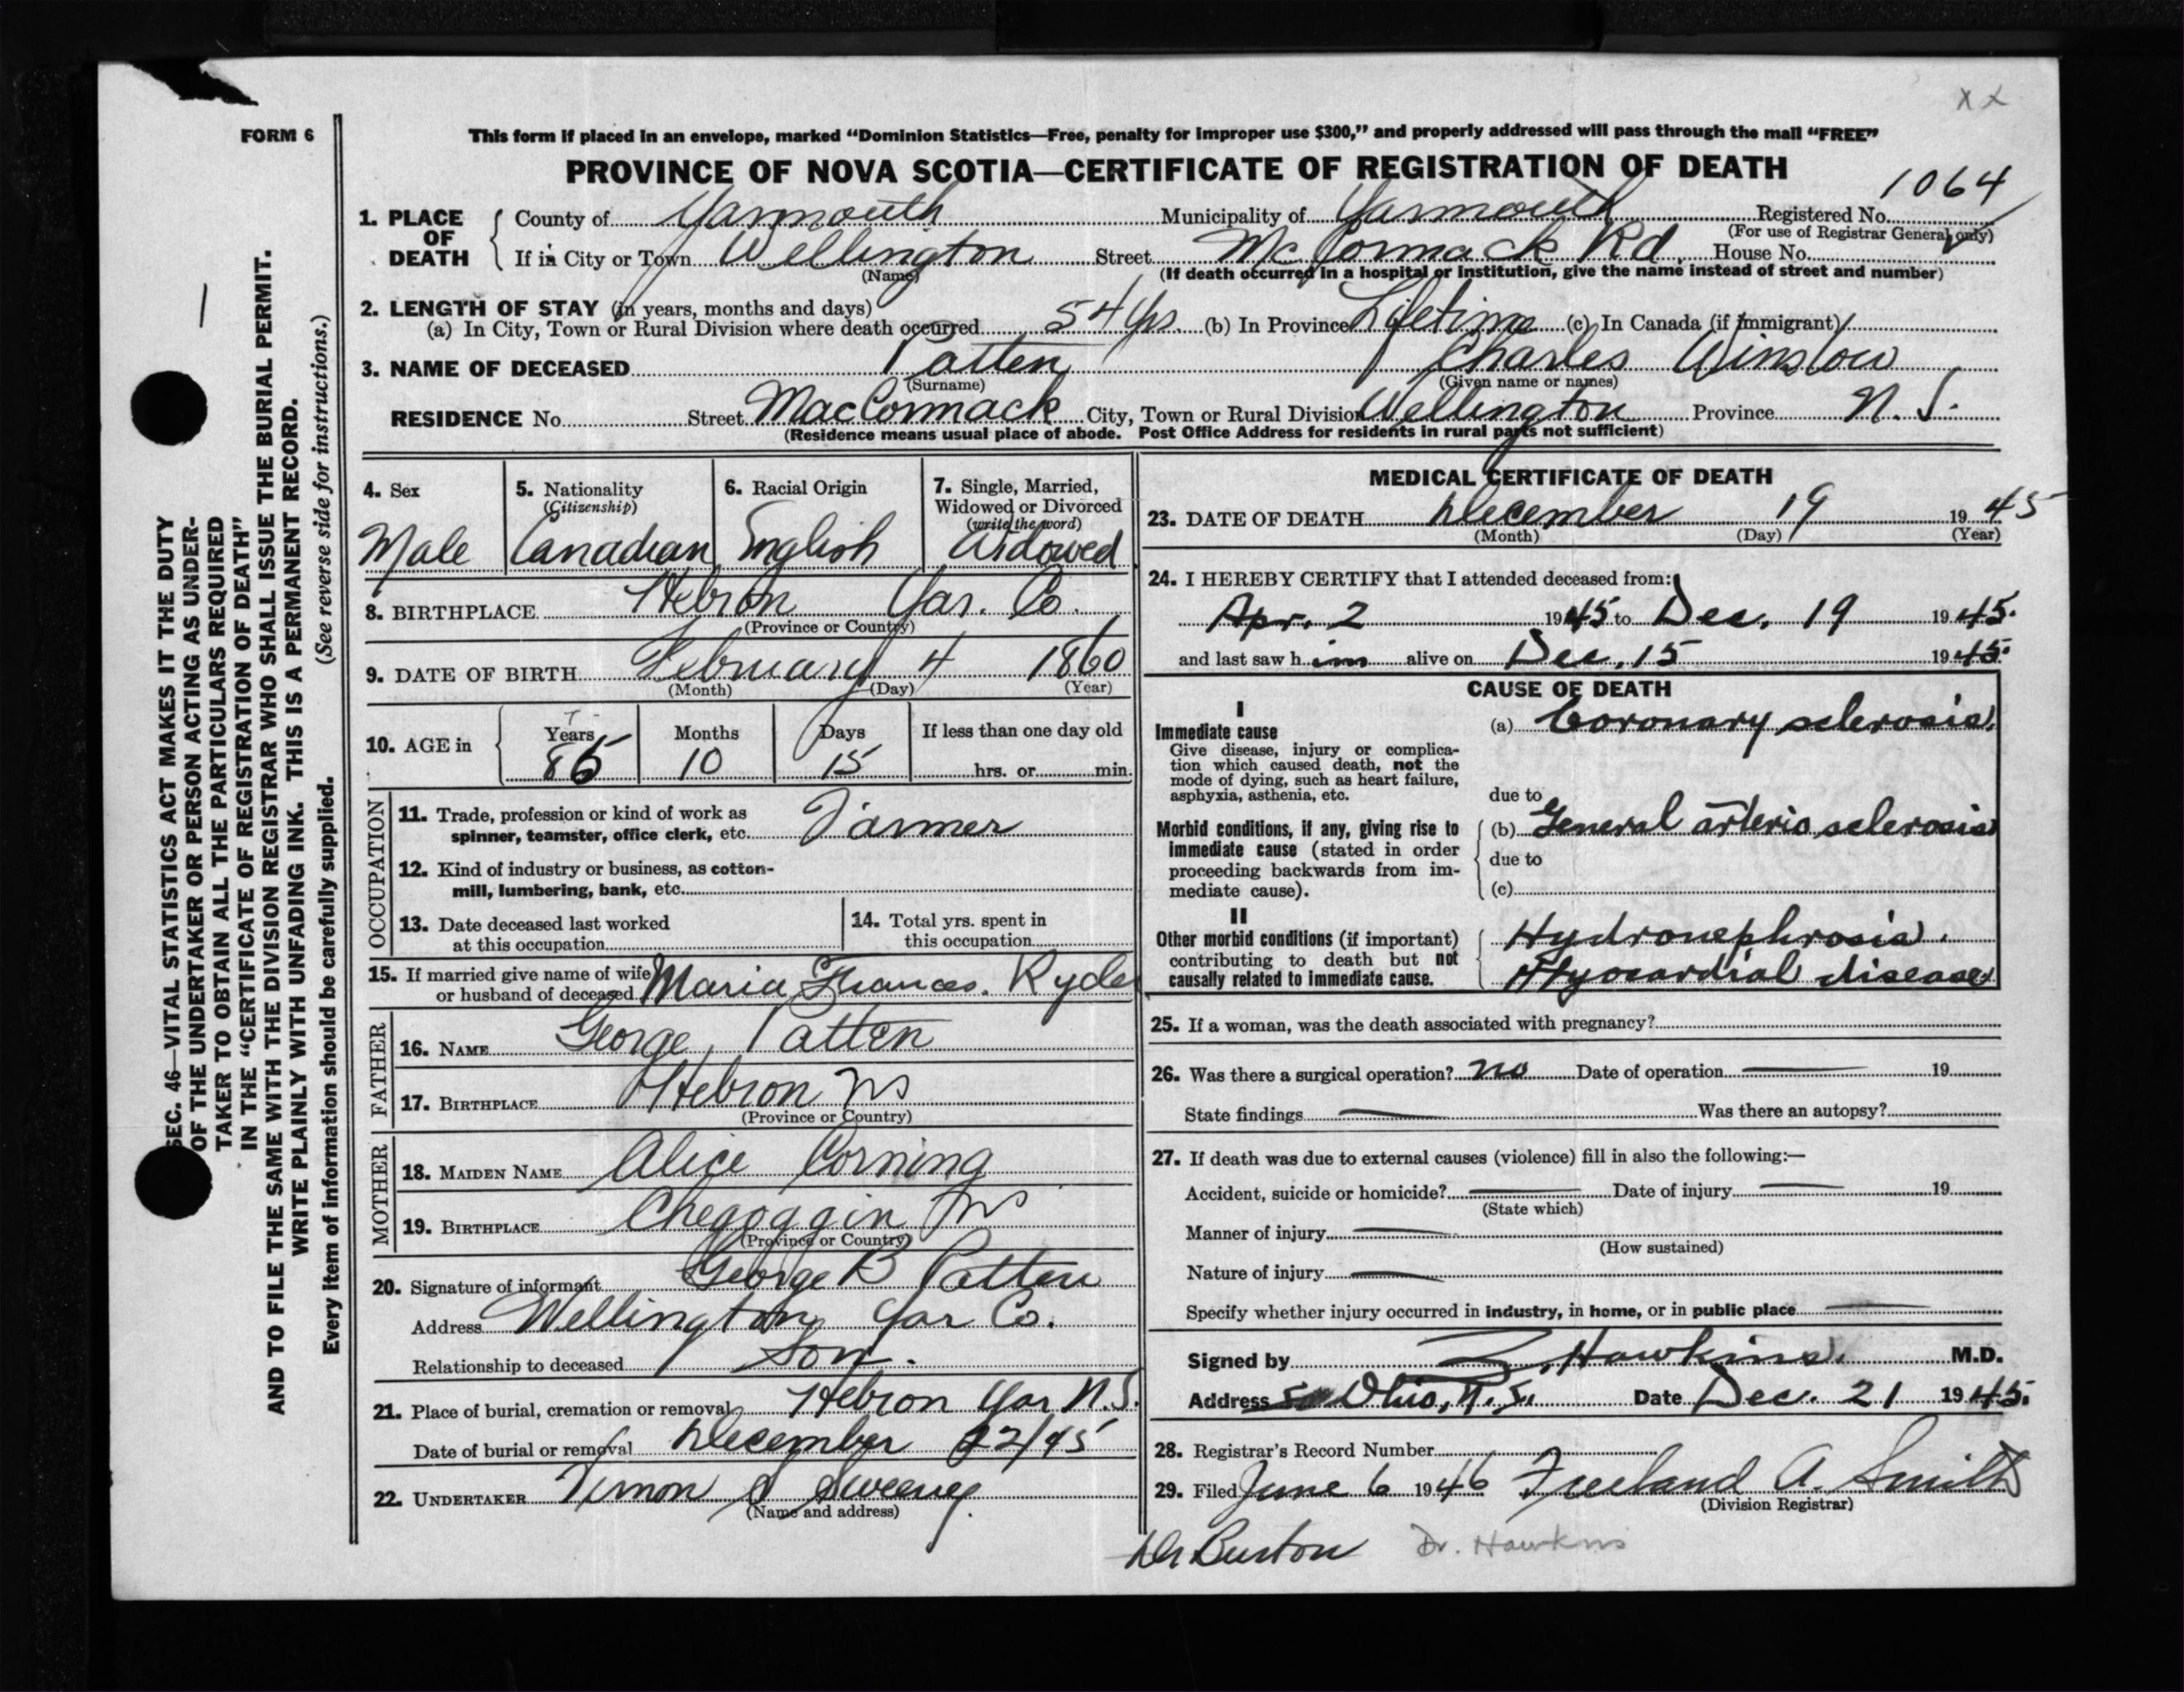 x x
FORM 6
This form if placed in an envelope, marked “Dominion Statistics—Free, penalty for improper use $300,” and properly addressed will pass through the mail “FREE”
PROVINCE OF NOVA SCOTIA—CERTIFICATE OF REGISTRATION OF DEATH
1064
1. PLACE OF DEATH { County of Yarmouth Municipality of Yarmouth Registered No.
(For use of Registrar General only)
If in City or Town Wellington Street McCormack Rd. House No.
(Name) (If death occurred in a hospital or institution, give the name instead of street and number)
2. LENGTH OF STAY (in years, months and days)
(a) In City, Town or Rural Division where death occurred 54 Yrs. (b) In Province Lifetime (c) In Canada (if immigrant)
3. NAME OF DECEASED Patten Charles Winslow
(Surname) (Given name or names)
RESIDENCE No. Street MacCormack City, Town or Rural Division Wellington Province N. S.
(Residence means usual place of abode. Post Office Address for residents in rural parts not sufficient)
4. Sex
Male
5. Nationality
(Citizenship)
Canadian
6. Racial Origin
English
7. Single, Married,
Widowed or Divorced
(write the word)
Widowed
8. BIRTHPLACE Hebron Yar. Co.
(Province or Country)
9. DATE OF BIRTH February 4 1860
(Month) (Day) (Year)
10. AGE in { Years Months Days If less than one day old
85 10 15 hrs. or min.
OCCUPATION
11. Trade, profession or kind of work as
spinner, teamster, office clerk, etc. Farmer
12. Kind of industry or business, as cotton-
mill, lumbering, bank, etc.
13. Date deceased last worked
at this occupation
14. Total yrs. spent in
this occupation
15. If married give name of wife
or husband of deceased Maria Frances. Ryder
FATHER
16. NAME George Patten
17. BIRTHPLACE Hebron NS
(Province or Country)
MOTHER
18. MAIDEN NAME Alice Corning
19. BIRTHPLACE Chegoggin NS
(Province or Country)
20. Signature of informant George B Patten
Address Wellington Yar Co.
Relationship to deceased Son.
21. Place of burial, cremation or removal Hebron Yar N.S.
Date of burial or removal December 22/45
22. UNDERTAKER Vernon S Sweeney.
(Name and address)
MEDICAL CERTIFICATE OF DEATH
23. DATE OF DEATH December 19 1945
(Month) (Day) (Year)
24. I HEREBY CERTIFY that I attended deceased from:
Apr. 2 1945 to Dec. 19 1945.
and last saw him alive on Dec. 15 1945.
CAUSE OF DEATH
I
Immediate cause
Give disease, injury or complica-
tion which caused death, not the
mode of dying, such as heart failure,
asphyxia, asthenia, etc.
(a) Coronary sclerosis.
due to
Morbid conditions, if any, giving rise to
immediate cause (stated in order
proceeding backwards from im-
mediate cause).
(b) General arterio sclerosis
due to
(c)
II
Other morbid conditions (if important)
contributing to death but not
causally related to immediate cause.
Hydronephrosis.
Myocardial disease
25. If a woman, was the death associated with pregnancy?
26. Was there a surgical operation? no Date of operation — 19
State findings — Was there an autopsy?
27. If death was due to external causes (violence) fill in also the following:—
Accident, suicide or homicide? — Date of injury — 19
(State which)
Manner of injury —
(How sustained)
Nature of injury —
Specify whether injury occurred in industry, in home, or in public place —
Signed by Z. Hawkins. M.D.
Address So Ohio, N. S. Date Dec. 21 1945.
28. Registrar's Record Number
29. Filed June 6 1946 Freeland A. Smith
(Division Registrar)
Dr Burton Dr. Hawkins
SEC. 46—VITAL STATISTICS ACT MAKES IT THE DUTY
OF THE UNDERTAKER OR PERSON ACTING AS UNDER-
TAKER TO OBTAIN ALL THE PARTICULARS REQUIRED
IN THE “CERTIFICATE OF REGISTRATION OF DEATH”
AND TO FILE THE SAME WITH THE DIVISION REGISTRAR WHO SHALL ISSUE THE BURIAL PERMIT.
WRITE PLAINLY WITH UNFADING INK. THIS IS A PERMANENT RECORD.
Every item of information should be carefully supplied. (See reverse side for instructions.)